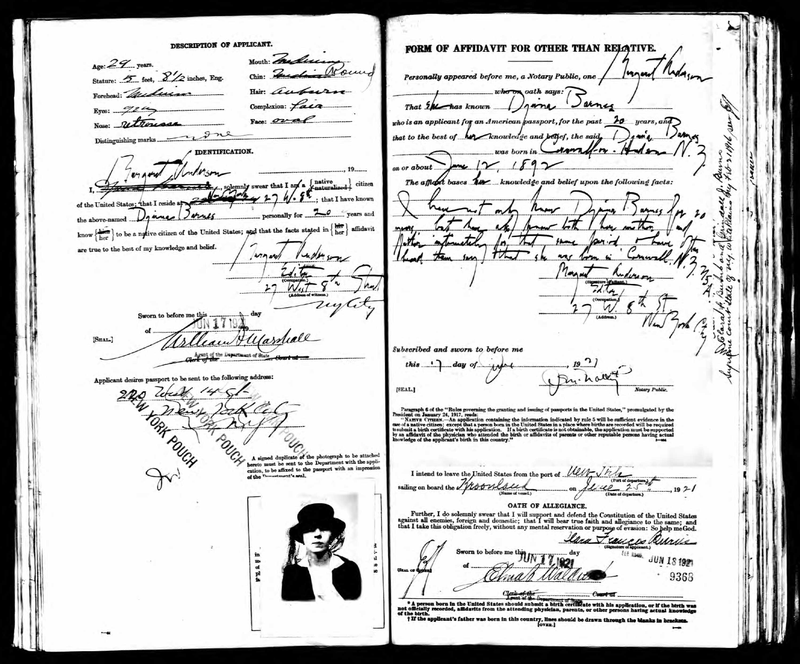 DESCRIPTION OF APPLICANT.
Age: 29 years.
Mouth: Medium
Stature: 5 feet, 8½ inches, Eng.
Chin: Round
Forehead: Medium
Hair: auburn
Eyes: grey
Complexion: Fair
Nose: retrousse
Face: oval
Distinguishing marks none
IDENTIFICATION.
Margaret Anderson 19
I, solemnly swear that I am a {native naturalized} citizen
of the United States; that I reside at 27 W. 8th; that I have known
the above-named Djuna Barnes personally for 20 years and
know {him her} to be a native citizen of the United States; and that the facts stated in {his her} affidavit
are true to the best of my knowledge and belief.
Margaret Anderson
Editor
(Occupation.)
27 West 8th Street
(Address of witness.)
NY City
Sworn to before me this day
of JUN 17 1921
[SEAL.] William H Marshall
Agent of the Department of State
Clerk of the Court at
Applicant desires passport to be sent to the following address:
220 West 14 St
New York City
N.Y.
NEW YORK POUCH
NEW YORK POUCH
A signed duplicate of the photograph to be attached
hereto must be sent to the Department with the appli-
cation, to be affixed to the passport with an impression
of the Department's seal.
FORM OF AFFIDAVIT FOR OTHER THAN RELATIVE.
Personally appeared before me, a Notary Public, one Margaret Anderson
who on oath says:
That she has known Djuna Barnes
who is an applicant for an American passport, for the past 20 years, and
that to the best of her knowledge and belief, the said Djuna Barnes
was born in Cornwall-on-Hudson N.Y.
on or about June 12, 1892
The affiant bases her knowledge and belief upon the following facts:
I have not only known Djuna Barnes for 20
years, but have also known both her mother and
father intimately for that same period & have often
heard them say that she was born in Cornwall, N.Y.
Margaret Anderson
(Signature of affiant.)
Editor
(Occupation.)
27 W. 8th St
(Address.)
New York City
Subscribed and sworn to before me
this 17 day of June, 1921
[SEAL.] Notary Public.
Paragraph 6 of the "Rules governing the granting and issuing of passports in the United States," promulgated by the
President on January 24, 1917, reads:
"NATIVE CITIZEN.—An application containing the information indicated by rule 5 will be sufficient evidence in the
case of a native citizen; except that a person born in the United States in a place where births are recorded will be required
to submit a birth certificate with his application. If a birth certificate is not obtainable, the application must be supported
by an affidavit of the physician who attended the birth or affidavits of parents or other reputable persons having actual
knowledge of the applicant's birth in this country."
I intend to leave the United States from the port of New York
(Port of departure.)
sailing on board the Kroonland on June 25th, 1921
(Name of vessel.) (Date of departure.)
OATH OF ALLEGIANCE.
Further, I do solemnly swear that I will support and defend the Constitution of the United States
against all enemies, foreign and domestic; that I will bear true faith and allegiance to the same; and
that I take this obligation freely, without any mental reservation or purpose of evasion: So help me God.
(Signature of applicant.)
Sworn to before me this day
of JUN 17 1921
JUN 18 1921
[SEAL OF COURT.]
9366
Clerk of the Court at
Agent of the Department of State
* A person born in the United States should submit a birth certificate with his application, or if the birth was
not officially recorded, affidavits from the attending physician, parents, or other persons having actual knowledge
of the birth.
† If the applicant's father was born in this country, lines should be drawn through the blanks in brackets.
[OVER.]